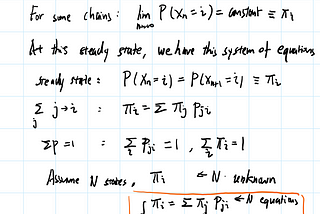 For some chains: lim n→∞ P(Xn = i) = constant ≡ πi
At this steady state, we have this system of equations
steady state: P(Xn = i) = P(Xn+1 = i) ≡ πi
Σj j→i : πi = Σ πj Pji
Σp = 1 : Σi Pji = 1, Σi πi = 1
Assume N states, πi ← N unknown
{ πi = Σ πj Pji ← N equations